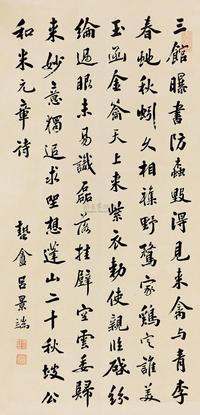 三館曝書防蠹毀得見来禽与青李
春虵秋蚓久相雜野鶩家鷄定誰美
玉函金籥天上来紫衣勅使親臨啟紛
綸過眼未易識磊落挂壁空雲委歸
来妙意獨追求坐想蓬山二十秋坡公
和米元章詩
蟄盦呂景端